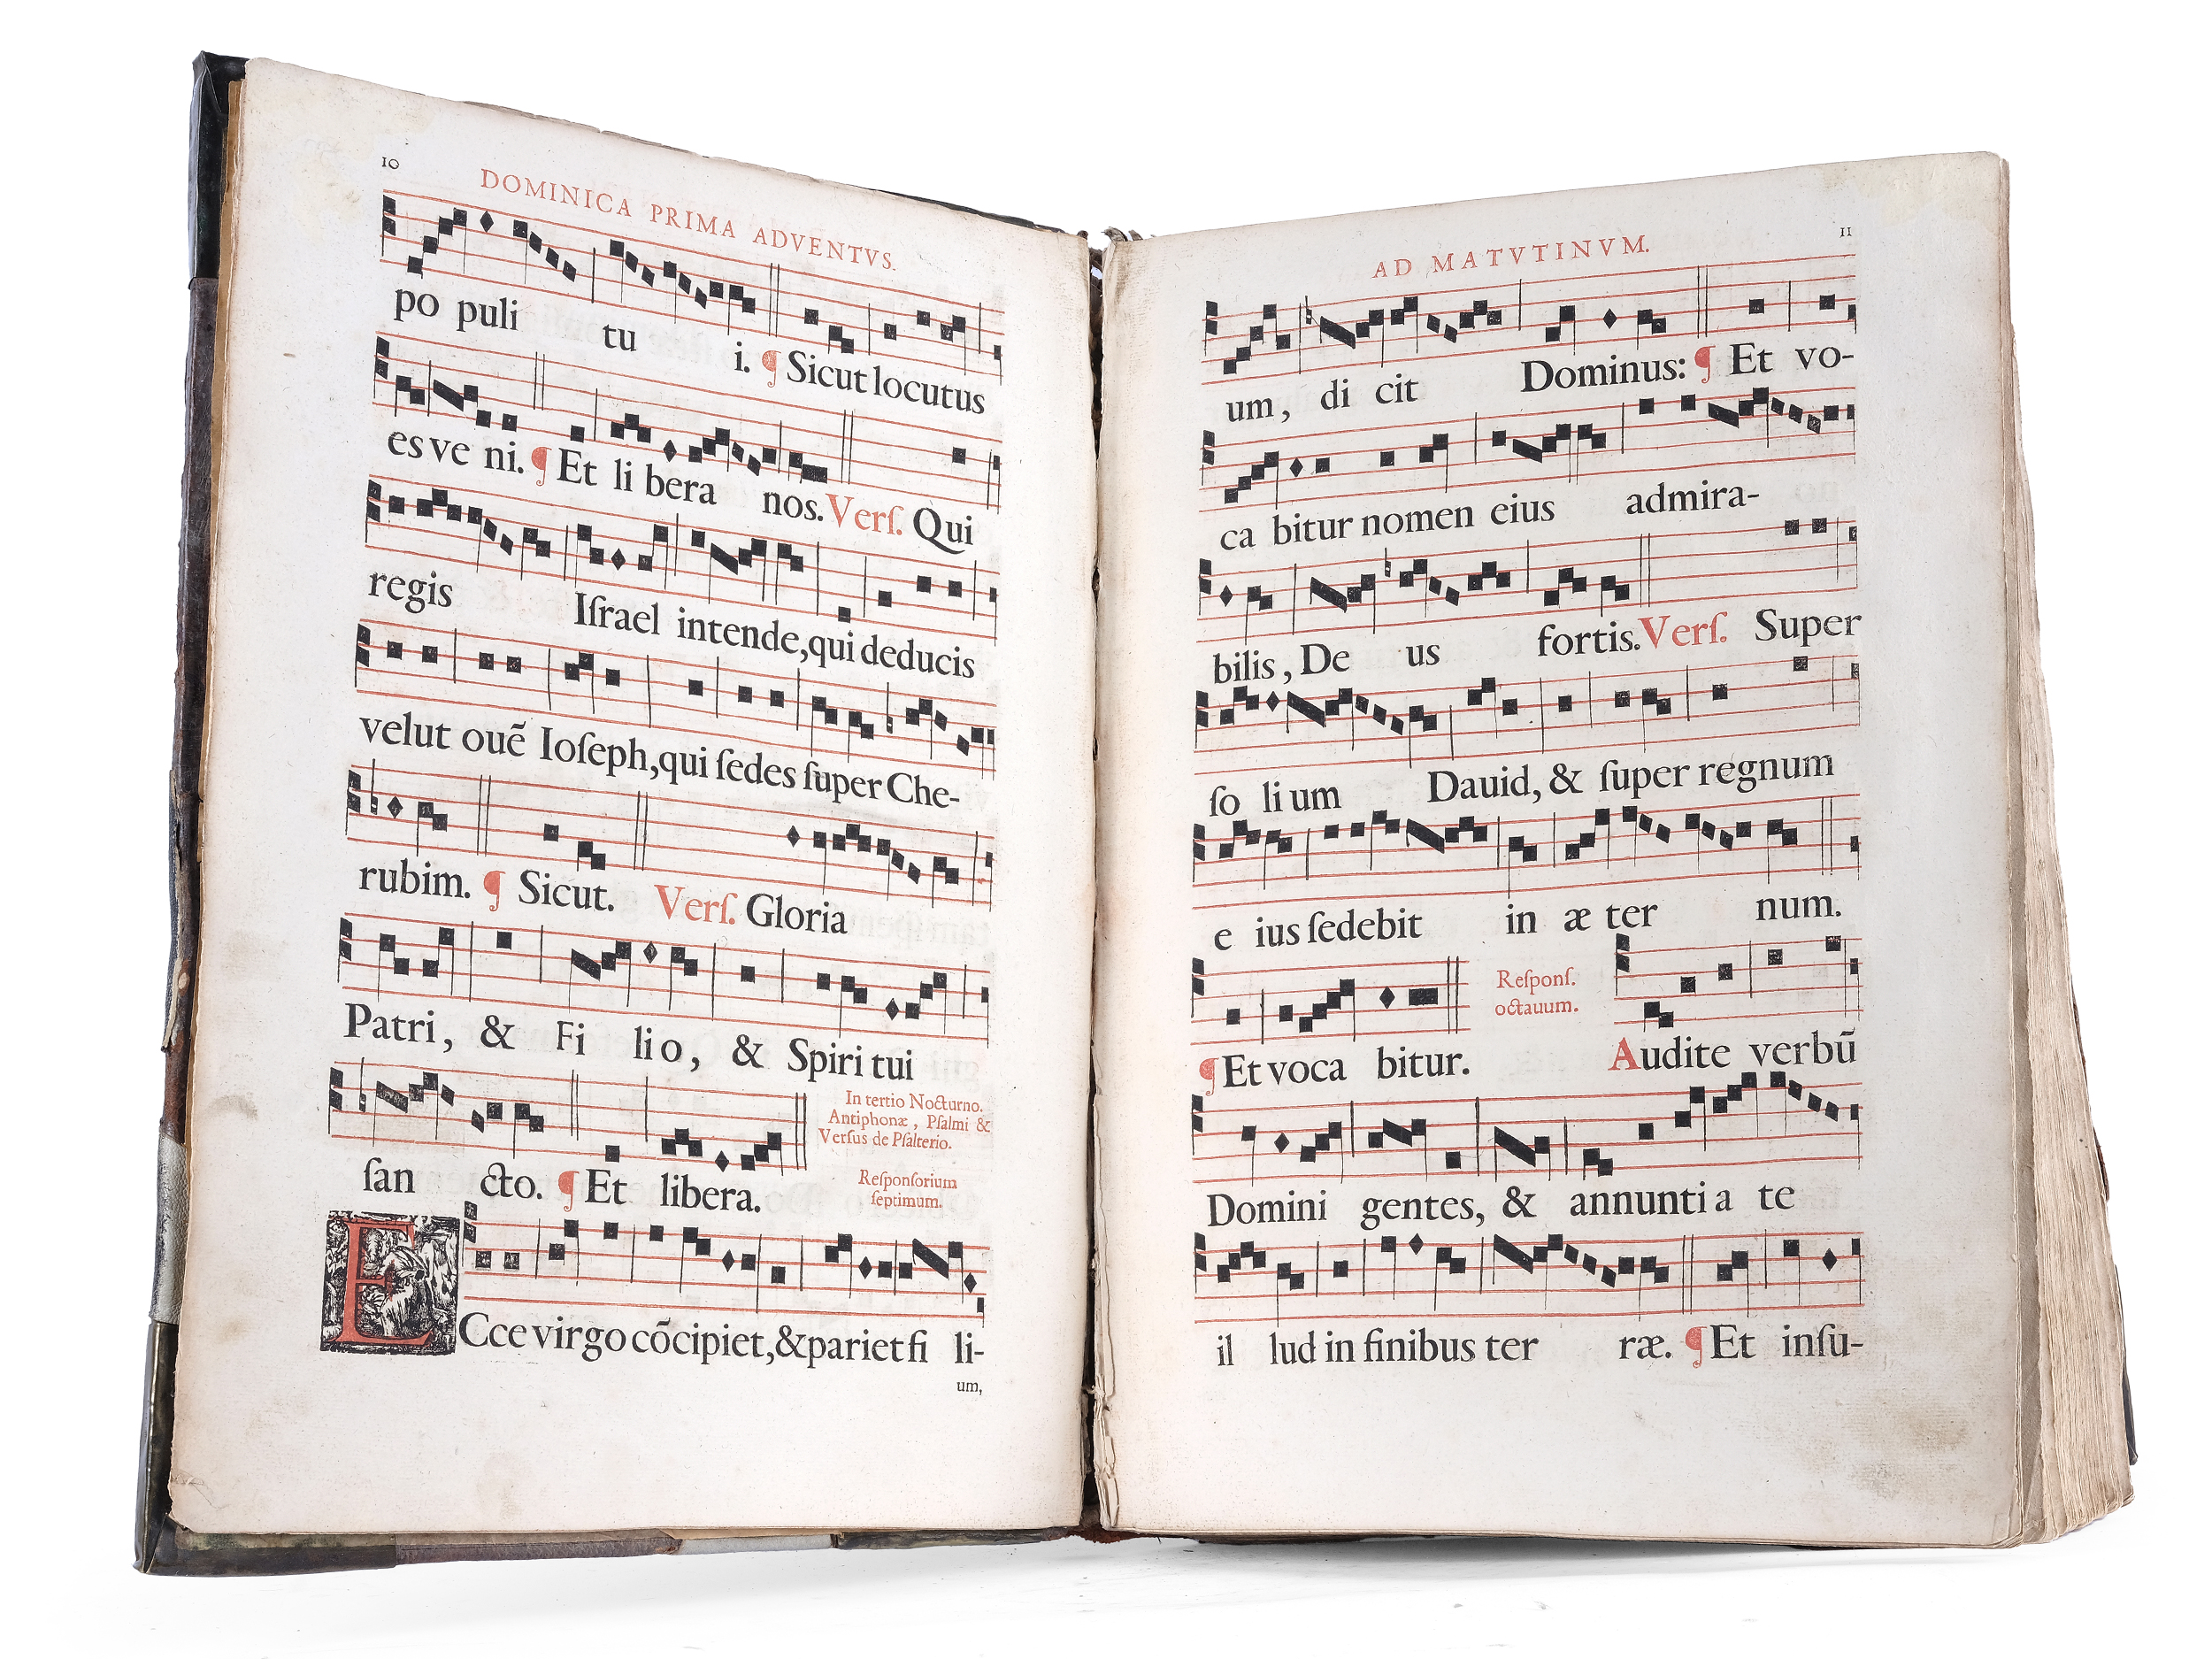 10
DOMINICA PRIMA ADVENTVS.
po puli tu i. ¶ Sicut locutus
es ve ni. ¶ Et li bera nos. Verſ. Qui
regis Iſrael intende, qui deducis
velut ouẽ Ioſeph, qui ſedes ſuper Che-
rubim. ¶ Sicut. Verſ. Gloria
Patri, & Fi li o, & Spiri tui
ſan cto. ¶ Et libera.
In tertio Nocturno.
Antiphonæ, Pſalmi &
Verſus de Pſalterio.
Reſponſorium
ſeptimum.
ECce virgo cõcipiet, & pariet fi li-
um,
11
AD MATVTINVM.
um, di cit Dominus: ¶ Et vo-
ca bitur nomen eius admira-
bilis, De us fortis. Verſ. Super
ſo li um Dauid, & ſuper regnum
e ius ſedebit in æ ter num.
¶ Et voca bitur.
Reſponſ.
octauum.
Audite verbũ
Domini gentes, & annunti a te
il lud in finibus ter ræ. ¶ Et inſu-